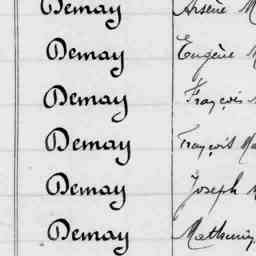 Demay Arsène M
Demay Eugène M
Demay François
Demay François Ma
Demay Joseph M
Demay Mathurin